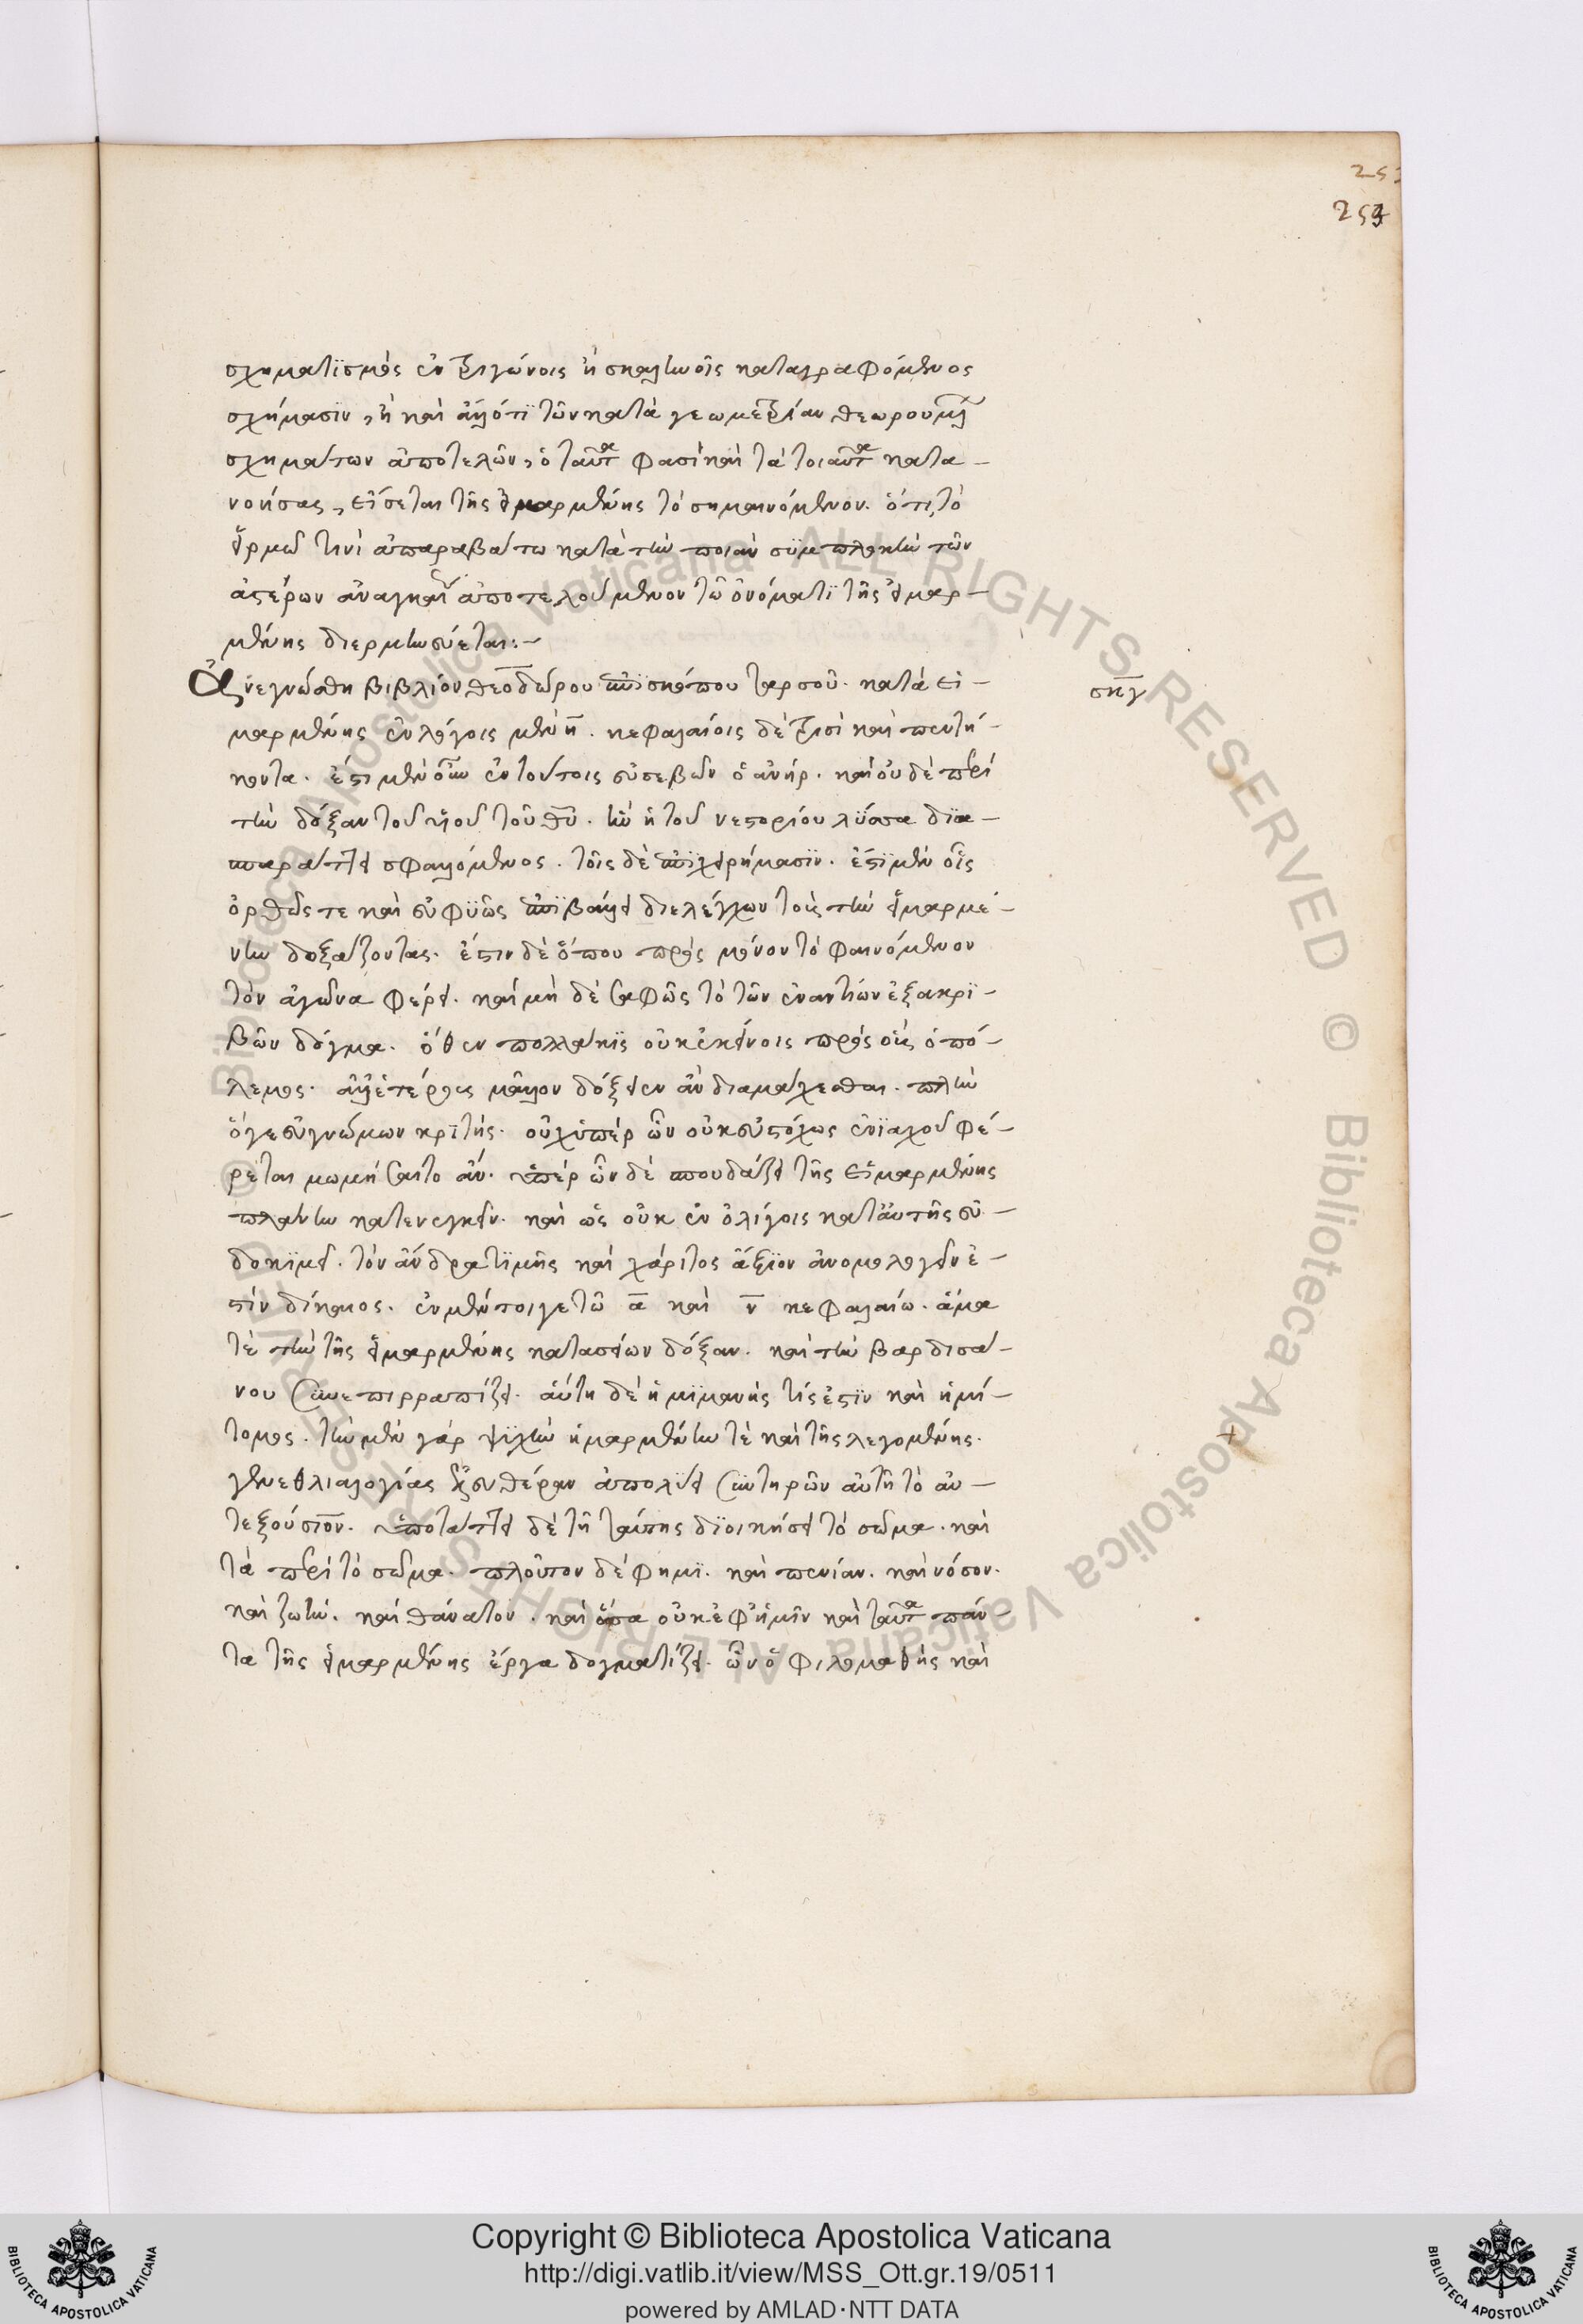 253
253
σχηματϊσμὸς ἐν τριγώνοις ἢ σκαληνοῖς καταγραφόμενος
σχήμασϊν, ἢ καὶ ἄλλό τϊ τῶν κατὰ γεωμετρίαν θεωρουμένων
σχημάτων ἀποτελῶν, ὁ ταῦτα φασὶ καὶ τὰ τοιαῦτα κατα-
νοήσας, εἴσεται τῆς εἱμαρμένης τὸ σημαινόμενον. ὅτι τὸ
εἱρμῶ τινὶ ἀπαραβάτω κατὰ τὴν ποιὰν συμπλοκὴν τῶν
ἀστέρων ἀνάγκαις ἀποτελούμενον τῶ ὀνόματϊ τῆς εἱμαρ-
μένης διερμηνεύεται:-
Ἀνεγνώσθη βιβλίον θεοδώρου ἐπϊσκόπου ταρσοῦ. κατὰ εἱ-
σκγ
μαρμένης ἐν λόγοις μὲν η̄. κεφαλαίοις δὲ τρισὶ καὶ πεντή-
κοντα. ἔστι μὲν οὖν ἐν τούτοις εὐσεβῶν ὁ ἀνήρ. καὶ οὐδὲ περὶ
τὴν δόξαν τοῦ υἱοῦ τοῦ θῡ. ἣν ἡ τοῦ νεστορίου λύσσα δϊα-
σπαράττει σφαλόμενος. τοῖς δὲ ἐπϊχειρήμασϊν. ἔστϊ μὲν οἷς
ὀρθῶς τε καὶ εὐφϋῶς ἐπϊβάλλει διελέγχων τοὺς τὴν εἱμαρμέ-
νην δοξάζοντας. ἔστιν δὲ ὅπου πρὸς μόνον τὸ φαινόμενον
τὸν ἀγῶνα φέρει. καὶ μὴ δὲ σαφῶς τὸ τῶν ἐναντίων ἐξακρϊ-
βῶν δόγμα. ὅθεν πολλάκϊς οὐκ ἐκείνοις πρὸς οὓς ὁ πό-
λεμος. ἀλλ' ἑτέροις μᾶλλον δόξειεν ἂν διαμάχεσθαι. πλὴν
ὅγε εὐγνώμων κρϊτὴς. οὐχ ὑπὲρ ὧν οὐκ εὐστόχως ἐνϊαχοῦ φέ-
ρεται μωμήσαιτο ἄν. ὑπὲρ ὧν δὲ σπουδάζει τῆς εἱμαρμένης
πλάνην κατενεγκεῖν. καὶ ὡς οὐκ ἐν ὀλίγοις κατ' αὐτῆς εὐ-
δοκϊμεῖ. τὸν ἄνδρα τϊμῆς καὶ χάριτος ἄξϊον ἀνομολογεῖν ἐ-
στὶν δίκαιος. ἐν μέν τοι γε τῶ ᾱ καὶ ν̄ κεφαλαίω. ἅμα
τὲ τὴν τῆς εἱμαρμένης κατασείων δόξαν. καὶ τὴν βαρδισά-
νου συνεπιρραπίζει. αὕτη δὲ ἡμϊμανής τίς ἐστϊν καὶ ἡμί-
τομος. τὴν μὲν γὰρ ψϋχὴν ἡμαρμένην τὲ καὶ τῆς λεγομένης.
γενεθλιαλογίας ἐλευθέραν ἀπολύει συντηρῶν αὐτῆ τὸ αὐ-
τεξούσιον. ὑποτάττει δὲ τῆ ταύτης δϊοικήσει τὸ σῶμα. καὶ
τὰ περὶ τὸ σῶμα. πλοῦτον δέ φημϊ. καὶ πενίαν. καὶ νόσον.
καὶ ζωὴν. καὶ θάνατον. καὶ ὅσα οὐκ ἐφ' ἡμῖν καὶ ταῦτα πάν-
τα τῆς εἱμαρμένης ἔργα δογματίζει. ὧν ὁ φιλομαθὴς καὶ
Copyright © Biblioteca Apostolica Vaticana
http://digi.vatlib.it/view/MSS_Ott.gr.19/0511
powered by AMLAD·NTT DATA
BIBLIOTECA APOSTOLICA VATICANA
BIBLIOTECA APOSTOLICA VATICANA